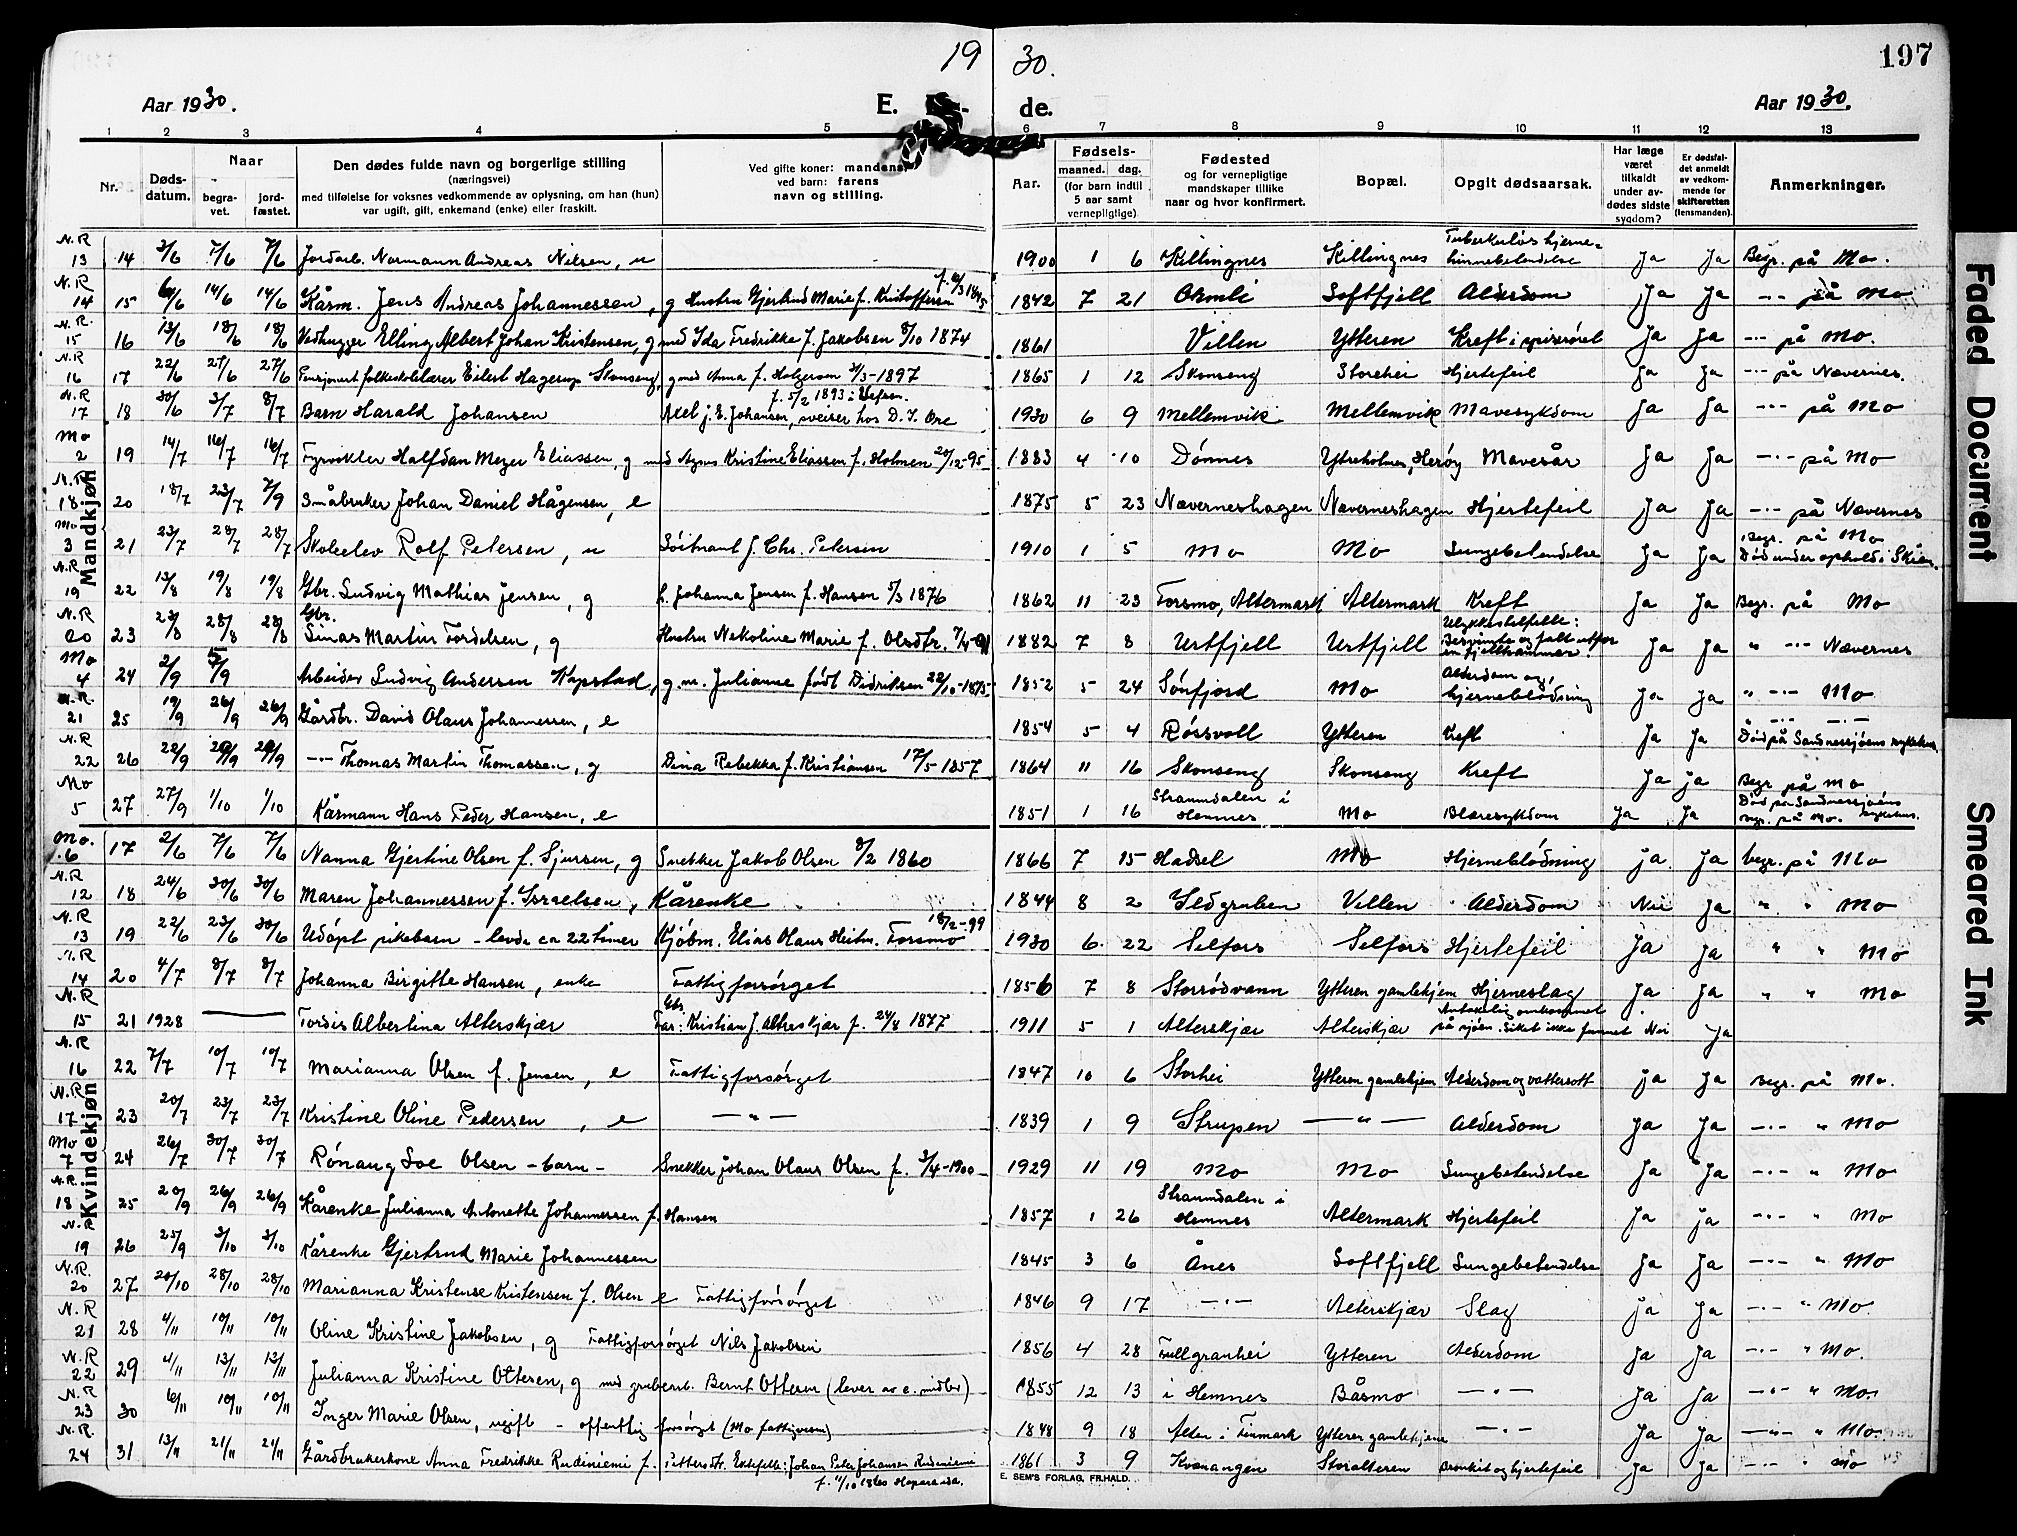 19 30.
197
Aar 1930.
E. de.
Aar 1930.
1 2 3 4 5 6 7 8 9 10 11 12 13
Nr.
Døds-
datum.
Naar
begra-
vet.
jord-
fæstet.
Den dødes fulde navn og borgerlige stilling
(næringsvei)
med tilføielse for voksnes vedkommende av oplysning, om han (hun)
var ugift, gift, enkemand (enke) eller fraskilt.
Ved gifte koner: mandens,
ved barn: farens
navn og stilling.
Aar.
Fødsels-
maaned. dag.
(for barn indtil
5 aar samt
vernepligtige)
Fødested
og for vernepligtige
mandskaper tillike
naar og hvor konfirmert.
Bopæl.
Opgit dødsaarsak.
Har læge
været
tilkaldt
under av-
dødes sidste
sygdom?
Er dødsfal-
det anmeldt
av vedkom-
mende for
skifteretten
(lensmanden).
Anmerkninger.
Mandkjøn
N.R 13 14 3/6 7/6 7/6 Jordarb. Normann Andreas Nilsen, u 1900 1 6 Killingnes Killingnes Tuberkuløs hjerne-hinnebetendelse Ja Ja Begr. på Mo.
N.R 14 15 6/6 14/6 14/6 Kårm. Jens Andreas Johannessen, g Hustru Gjertrud Marie f. Kristoffersen 1842 7 21 Softfjell Alderdom Ja Ja -"- på Mo
N.R. 15 16 13/6 18/6 18/6 Vedhugger Elling Albert Johan Kristensen, g med Ida Fredrikke f. Jakobsen 8/10 1874 1861 Villen Ytteren Kreft i spiserøret Ja Ja -"- på Mo.
N.R 16 17 22/6 27/6 27/6 Pensjonert folkeskolelærer Eilert Hagerup Skonseng, g med Anna f. Holgersen 31/3-1897 1865 1 12 Skonseng Storehei Hjertefeil Ja Ja -"- på Nævernes.
N.R 17 18 30/6 3/7 8/7 Barn Harald Johansen Axel J. E. Johansen, sveiser hos D. I. Ore f. 5/2 1893 i Vefsen. 1930 6 9 Mellemvik Mellemvik Mavesykdom Ja Ja -"- på Mo
Mo 2 19 14/7 16/7 16/7 Fyrvokter Halfdan Mezer Eliassen, g med Agnes Kristine Eliassen f. Holmen 20/12-95 1883 4 10 Dønnes Ytreholmes, Herøy Mavesår Ja Ja -"- på Mo
N.R 18 20 18/7 23/7 7/9 Småbruker Johan Daniel Hågensen, e 1875 5 23 Næverneshagen Næverneshagen Hjertefeil Ja Ja -"- på Nævernes
Mo 3 21 23/7 28/7 28/7 Skoleelev Rolf Petersen, u Løitnant J. Chr. Petersen 1910 1 5 Mo Mo Lungebetendelse Ja Ja Begr. på Mo Død under ophold i
N.R 19 22 13/8 19/8 19/8 Gbr. Ludvig Mathias Jensen, g h. Johanna Jensen f. Hansen 5/3 1876 1862 11 23 Forsmo, Altermark Altermark Kreft Ja Ja Begr. på Mo
N.R 20 23 23/8 28/8 28/8 Gbr. Sinas Martin Tordelsen, g Hustru Nekoline Marie f. Olsdtr. 1882 7 8 Urtfjell Urtfjell Ulykkestilfelle: Besvimte og falt utfor en fjellhammer. Ja Ja " -"- Nævernes
Mo 4 24 2/9 5/9 Arbeider Ludvig Andersen Kapstad, g. m. Julianne født Didriksen 22/10-1875 1852 5 24 Sønfjord Mo Alderdom og hjerneblødning Ja Ja " -"- Mo
N.R. 21 25 19/9 26/9 26/9 Gårdbr. David Olaus Johannessen, e 1854 5 4 Røssvoll Ytteren Kreft Ja Ja -"- -"- Død på Sandnessjøens sykehus.
N.R 22 26 22/9 29/9 29/9 -"- Thomas Martin Thomassen, g Dina Rebekka f. Kristiansen 17/5 1857 1864 11 16 Skonseng Skonseng Kreft Ja Ja Begr på Mo
Mo 5 27 27/9 1/10 1/10 Kårmann Hans Peder Hansen, e 1851 1 16 Straumdalen i Hemnes Mo Blæresykdom Ja Ja Død på Sandnessjøens sykehus. Begr. på Mo.
Kvindekjøn
Mo. 6 17 2/6 7/6 7/6 Nanna Gjertine Olsen f. Sjursen, g Snekker Jakob Olsen 8/2 1860 1866 7 15 Hadsel Mo Hjerneblødning ja ja begr. på Mo
N.R 12 18 24/6 30/6 30/6 Maren Johannessen f. Israelsen, Kårenke 1844 8 2 Ildgruben Villen Alderdom Nei Ja " " Mo
N.R 13 19 22/6 23/6 30/6 Udøpt pikebarn - levde ca 22 timer Kjøbm. Elias Olaus Heitm. Forsmo 18/2-99 1930 6 22 Selfors Selfors Hjertefeil Ja Ja " " Mo
N.R 14 20 4/7 8/7 8/7 Johanna Birgitte Hansen, enke Fattigforsørget 1856 7 8 Storrødvann Ytteren gamlehjem Hjerneslag Ja Ja " " Mo
N.R 15 21 1928 — Tordis Albertina Alterskjær Gbr. Far: Kristian J. Alterskjær f. 24/8 1877 1911 5 1 Alterskjær Alterskjær Antakelig omkommet på sjøen. Liket ikke funnet Nei Ja
N.R 16 22 7/7 10/7 10/7 Marianna Olsen f. Jensen, e Fattigforsørget 1847 10 6 Storhei Ytteren gamlehjem Alderdom og vattersott ja Ja Begr. på Mo.
N.R 17 23 20/7 23/7 23/7 Kristine Oline Pedersen, e —"— 1839 1 9 Strupen —"— Alderdom Ja Ja -"- " Mo
Mo 7 24 26/7 30/7 30/7 Rønaug Loe Olsen - barn - Snekker Johan Olaus Olsen f. 3/4-1900 1929 11 19 Mo Mo Lungebetendelse Ja Ja -"- " Mo
N.R. 18 25 20/9 26/9 26/9 Kårenke Julianna Antonette Johannessen f. Hansen 1857 1 26 Straumdalen i Hemnes Altermark Hjertefeil Ja ja -"- " Mo
N.R 19 26 25/9 3/10 3/10 Kårenke Gjertrud Marie Johannessen 1845 3 6 Ånes Softfjell Lungebetendelse Ja Ja -"- " Mo
N.R. 20 27 20/10 28/10 28/10 Marianna Kristense Kristensen f. Olsen e Fattigforsørget 1846 9 17 —"— Alterskjær Slag ja Ja -"- " Mo.
N.R 21 28 4/11 10/11 10/11 Oline Kristine Jakobsen, g Fattigforsørget Nils Jakobsen 1856 4 28 Fullgranhei Ytteren Alderdom Ja Ja -"- " Mo.
N.R 22 29 4/11 13/11 13/11 Julianna Kristine Ottersen, g med grubearb. Bernt Ottersen (lever av e. midler) 1855 12 13 i Hemnes Båsmo —"— Ja Ja -"- " Mo.
N.R 23 30 6/11 10/11 10/11 Inger Marie Olsen, ugift - offentlig forsørget (Mo fattigvesen) 1848 9 18 Alten i Finmark Ytteren gamlehjem —"— Ja Ja -"- " Mo
N.R. 24 31 13/11 21/11 21/11 Gårdbrukerkone Anna Fredrikke Rudiniemi f. Pettersdtr. Ektefelle: Johan Peter Johansen Rudiniemi f. 11/10 1860 Haparanda. 1861 3 9 Kvænangen Storalteren Bronkit og hjertefeil Ja Ja -"- " Mo
E. SEM'S FORLAG, FR.HALD.
Faded Document
Smeared Ink